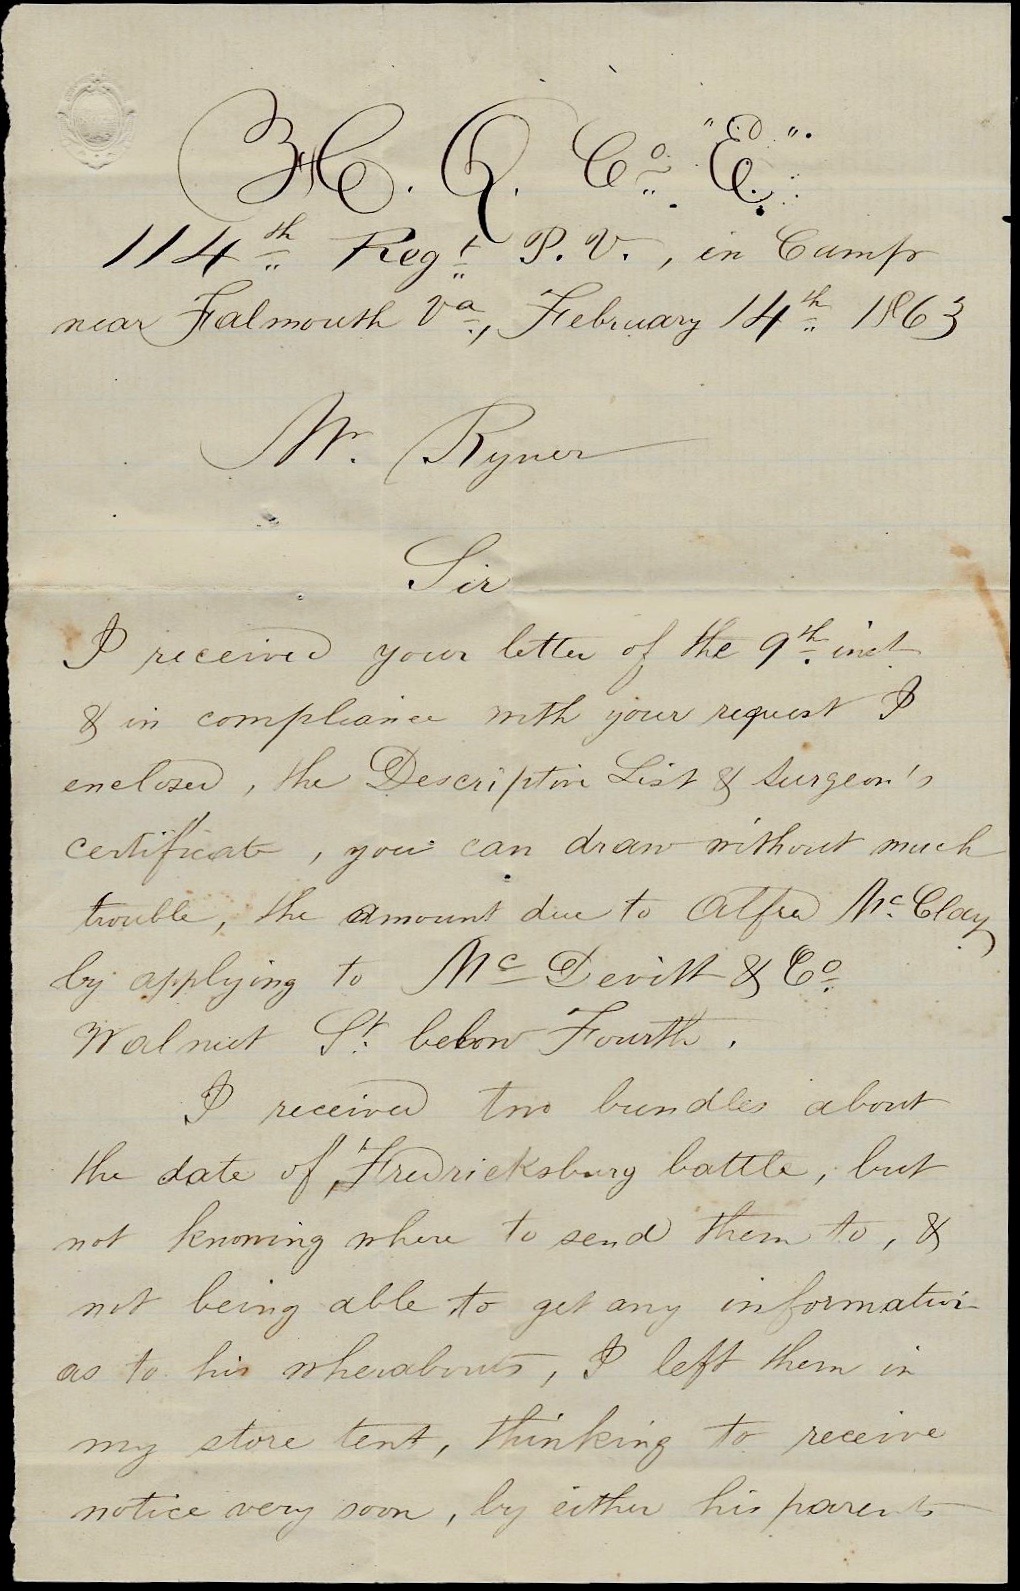 H. Q. Co. "E".
114th Regt P. V., in Camp
near Falmouth Va., February 14th 1863
Mr. Ryner
Sir
I received your letter of the 9th inst
& in compliance with your request I
enclosed, the Descriptive List & Surgeon's
certificate, you can draw without much
trouble, the amount due to Alfred McClay
by applying to McDevitt & Co.
Walnut St. below Fourth.
I received two bundles about
the date of Fredricksburg battle, but
not knowing where to send them to, &
not being able to get any information
as to his wherabouts, I left them in
my store tent, thinking to receive
notice very soon, by either his parents